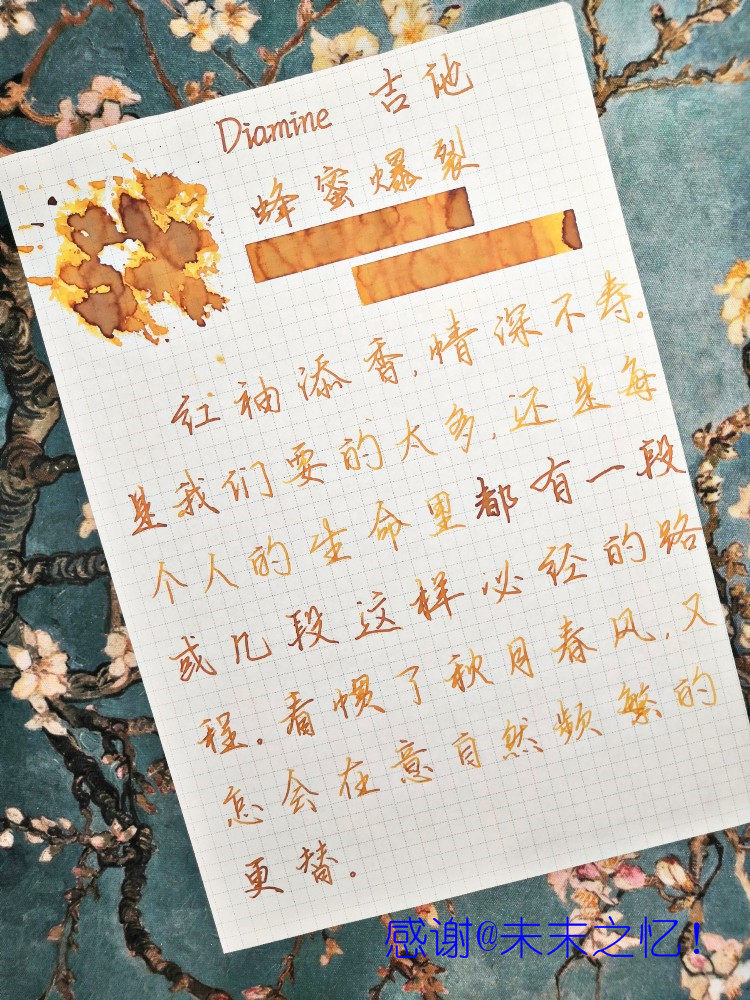 Diamine 吉他
蜂蜜爆裂
红袖添香,情深不寿.
是我们要的太多,还是每
个人的生命里都有一段
或几段这样必经的路
程。看惯了秋月春风,又
怎会在意自然频繁的
更替。
感谢@未末之忆!